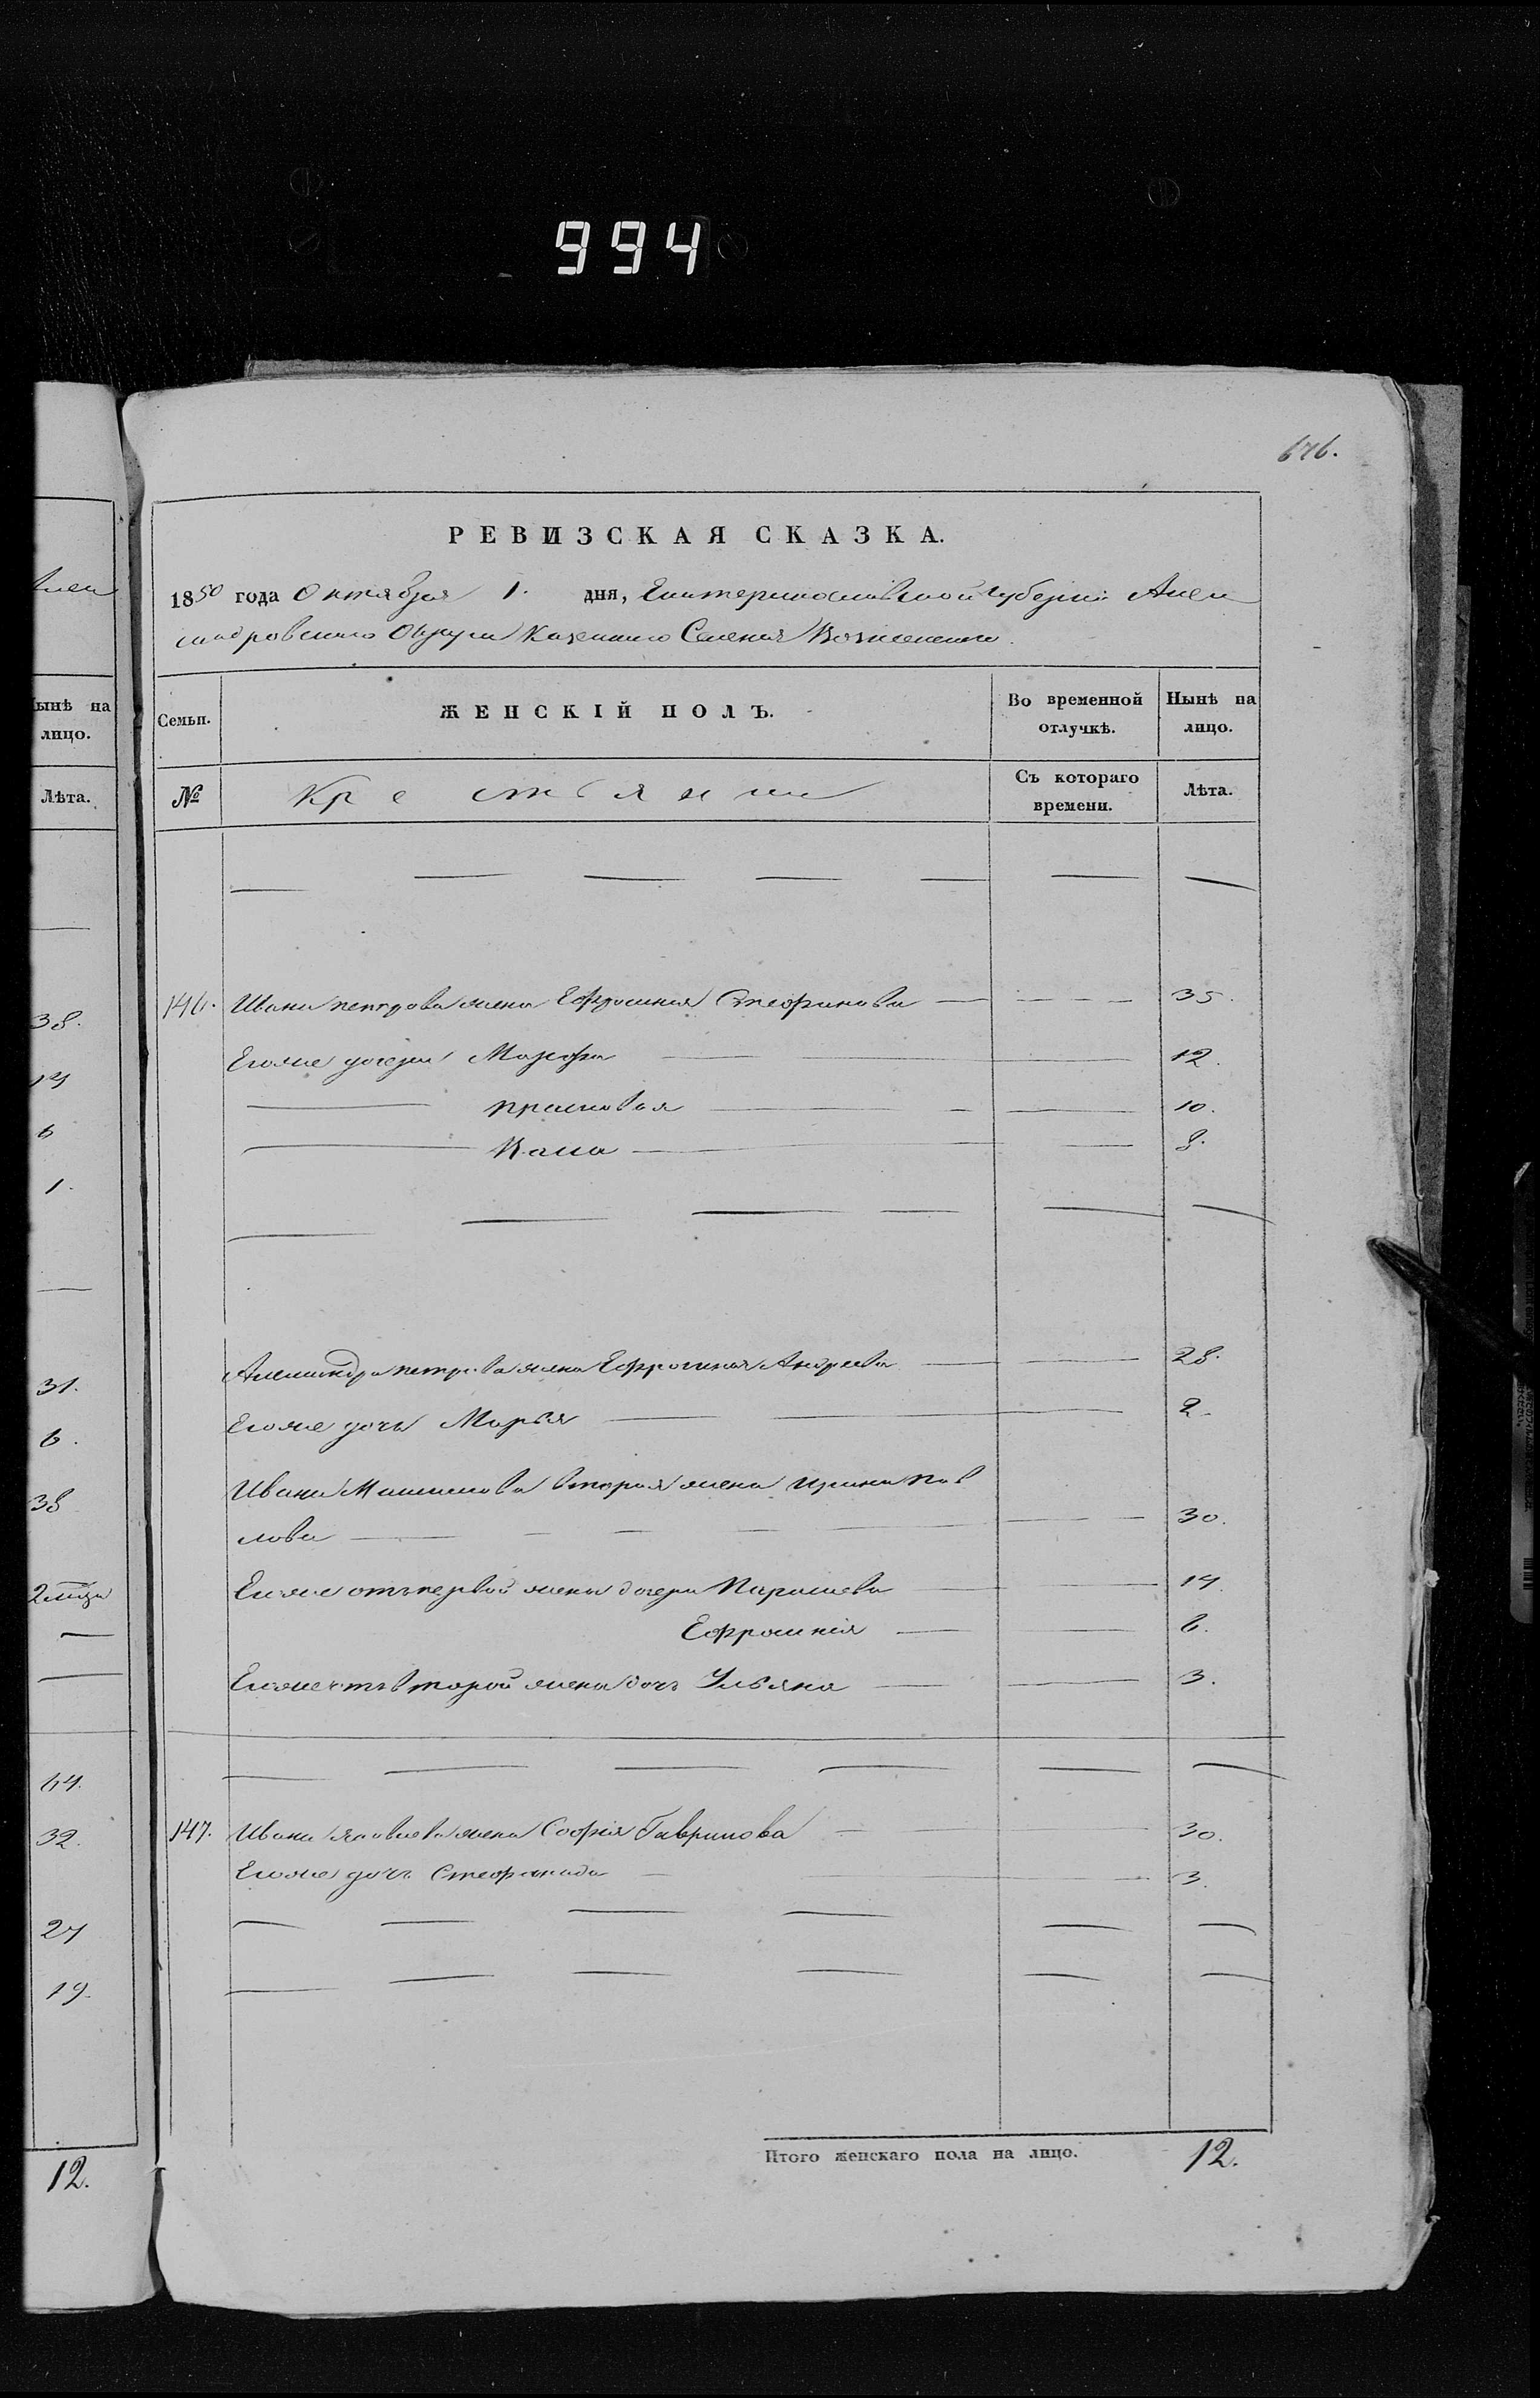 994
676.
РЕВИЗСКАЯ СКАЗКА.
1850 года Октября 1. дня, Екатеринославской Губерніи Алек
сандровскаго Округа Казеннаго Селенія Вознесенки.
Семьи.
ЖЕНСКІЙ ПОЛЪ.
Во временной
отлучкѣ.
Нынѣ на
лицо.
№
Крестьяне
Съ котораго
времени.
Лѣта.
146. Ивана петрова жена Ефросинія Стефанова 35.
Егоже дочери Марфа 12.
прасковья 10.
8.
Александра петрова жена Ефросинія Андреева 28.
Егоже дочь Марья 2.
Ивана вторая жена ирина пав
лова 30.
Егоже отъ первой жены дочери 14.
Ефросинія 6.
Егоже отъ второй жены дочь Ульяна 3.
147. Ивана яковлева жена Софія Гаврилова 30.
Егоже дочь Стефанида 3.
Итого женскаго пола на лицо. 12.
Нынѣ на
лицо.
Лѣта.
38.
14
6
1.
31.
6.
38
64.
32.
27
19.
12.